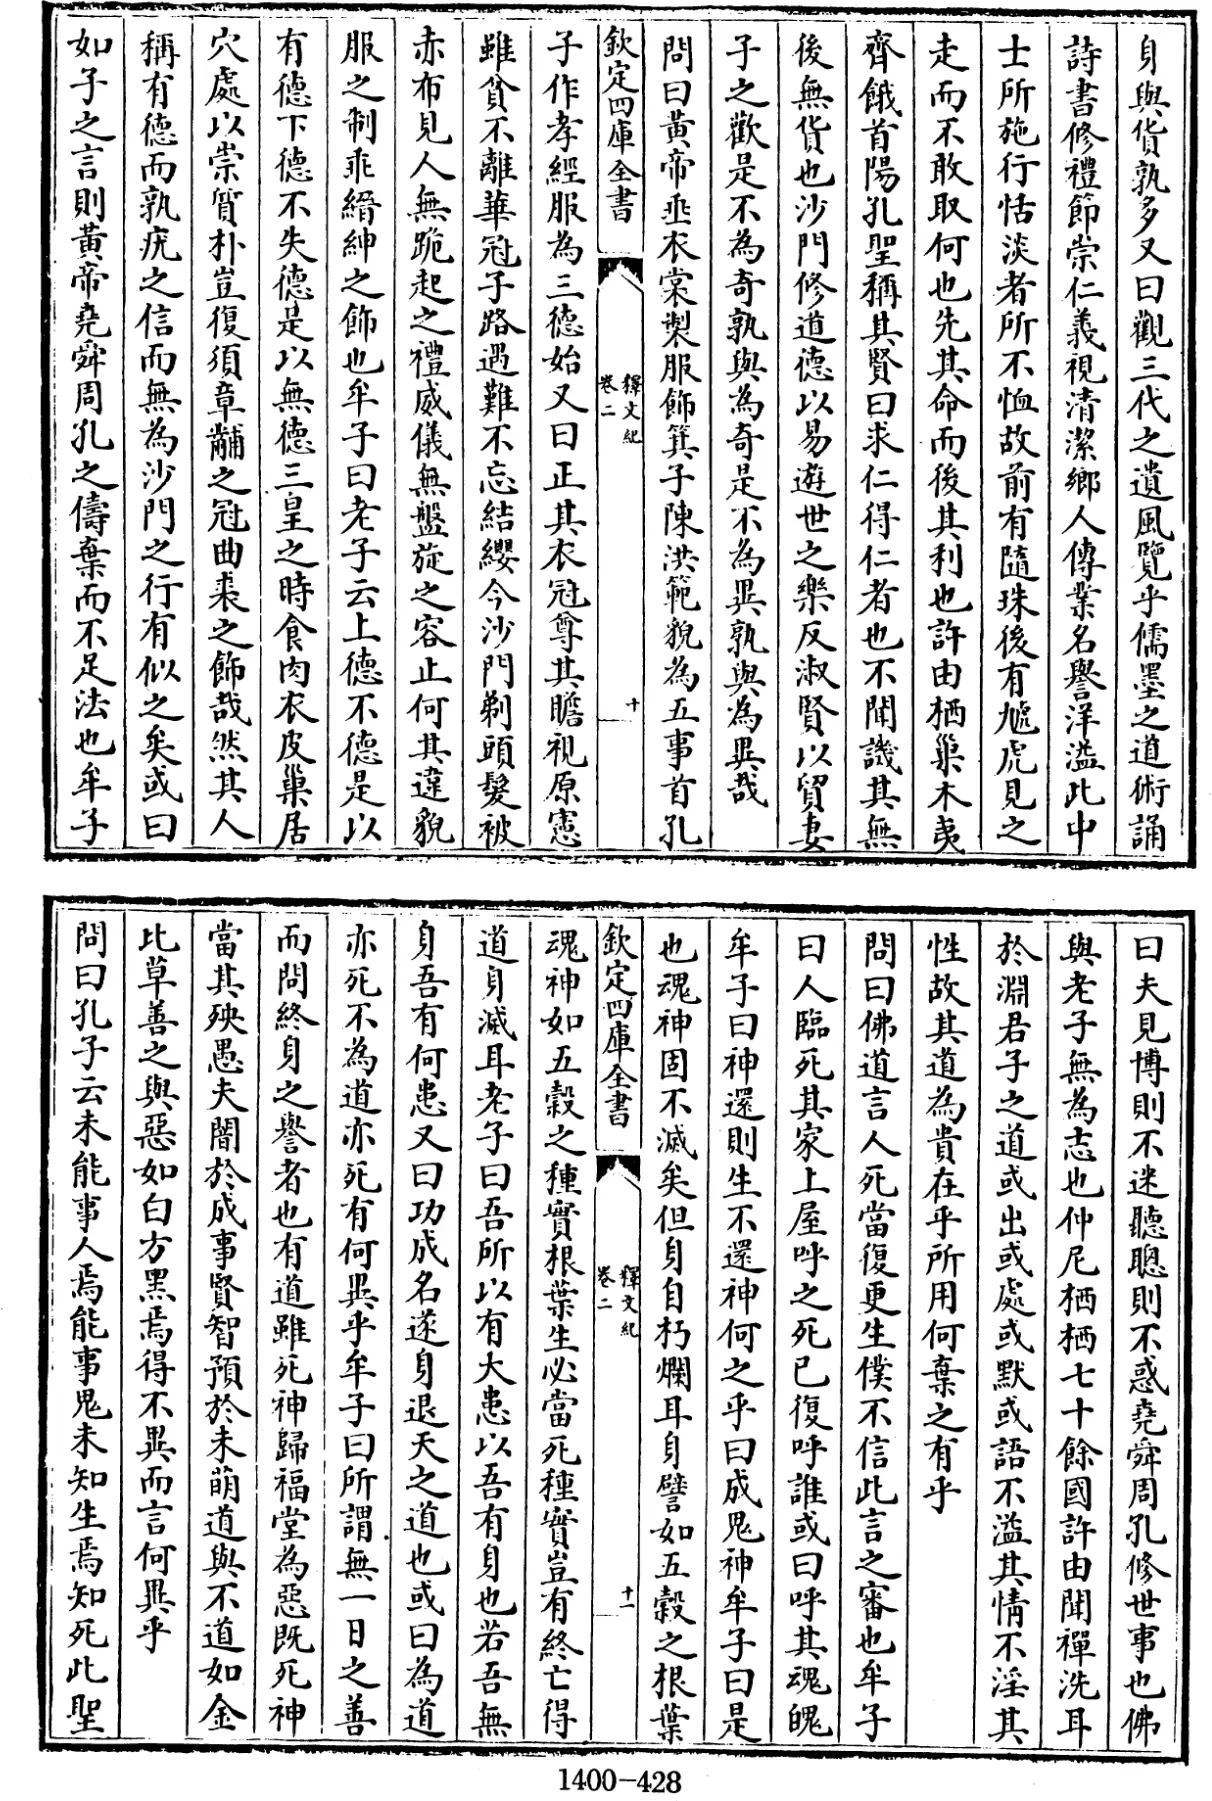 身與貨孰多又曰觀三代之遺風覽乎儒墨之道術誦
詩書修禮節崇仁義視清潔鄉人傳業名譽洋溢此中
士所施行恬淡者所不恤故前有隨珠後有虓虎見之
走而不敢取何也先其命而後其利也許由栖巢木夷
齊餓首陽孔聖稱其賢曰求仁得仁者也不聞譏其無
後無貨也沙門修道德以易遊世之樂反淑賢以貿妻
子之歡是不為奇孰與為奇是不為異孰與為異哉
問曰黃帝垂衣裳製服飾箕子陳洪範貌為五事首孔
欽定四庫全書
釋文紀
卷二
十
子作孝經服為三德始又曰正其衣冠尊其瞻視原憲
雖貧不離華冠子路遇難不忘結纓今沙門剃頭髮被
赤布見人無跪起之禮威儀無盤旋之容止何其違貌
服之制乖縉紳之飾也牟子曰老子云上德不德是以
有德下德不失德是以無德三皇之時食肉衣皮巢居
穴處以崇質朴豈復須章黼之冠曲裘之飾哉然其人
稱有德而孰疣之信而無為沙門之行有似之矣或曰
如子之言則黃帝堯舜周孔之儔棄而不足法也牟子
曰夫見博則不迷聽聰則不惑堯舜周孔修世事也佛
與老子無為志也仲尼栖栖七十餘國許由聞禪洗耳
於淵君子之道或出或處或默或語不溢其情不淫其
性故其道為貴在乎所用何棄之有乎
問曰佛道言人死當復更生僕不信此言之審也牟子
曰人臨死其家上屋呼之死已復呼誰或曰呼其魂魄
牟子曰神還則生不還神何之乎曰成鬼神牟子曰是
也魂神固不滅矣但身自朽爛耳身譬如五穀之根葉
欽定四庫全書
釋文紀
卷二
十一
魂神如五穀之種實根葉生必當死種實豈有終亡得
道身滅耳老子曰吾所以有大患以吾有身也若吾無
身吾有何患又曰功成名遂身退天之道也或曰為道
亦死不為道亦死有何異乎牟子曰所謂無一日之善
而問終身之譽者也有道雖死神歸福堂為惡既死神
當其殃愚夫闇於成事賢智預於未萌道與不道如金
比草善之與惡如白方黑焉得不異而言何異乎
問曰孔子云未能事人焉能事鬼未知生焉知死此聖
1400-428